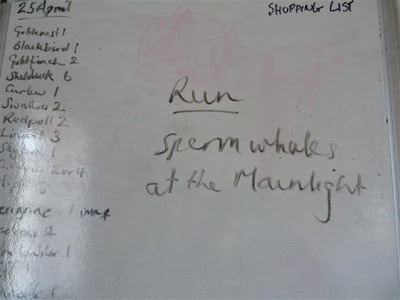 25 April
Goldcrest 1
Blackbird 1
Goldfinch 2
Shelduck 6
Curlew 1
Swallow 2
Redpoll 2
Linnet 3
1
2 or 4
peregrine 1 imm
1
SHOPPING LIST
Run
Sperm whales
at the Mainlight